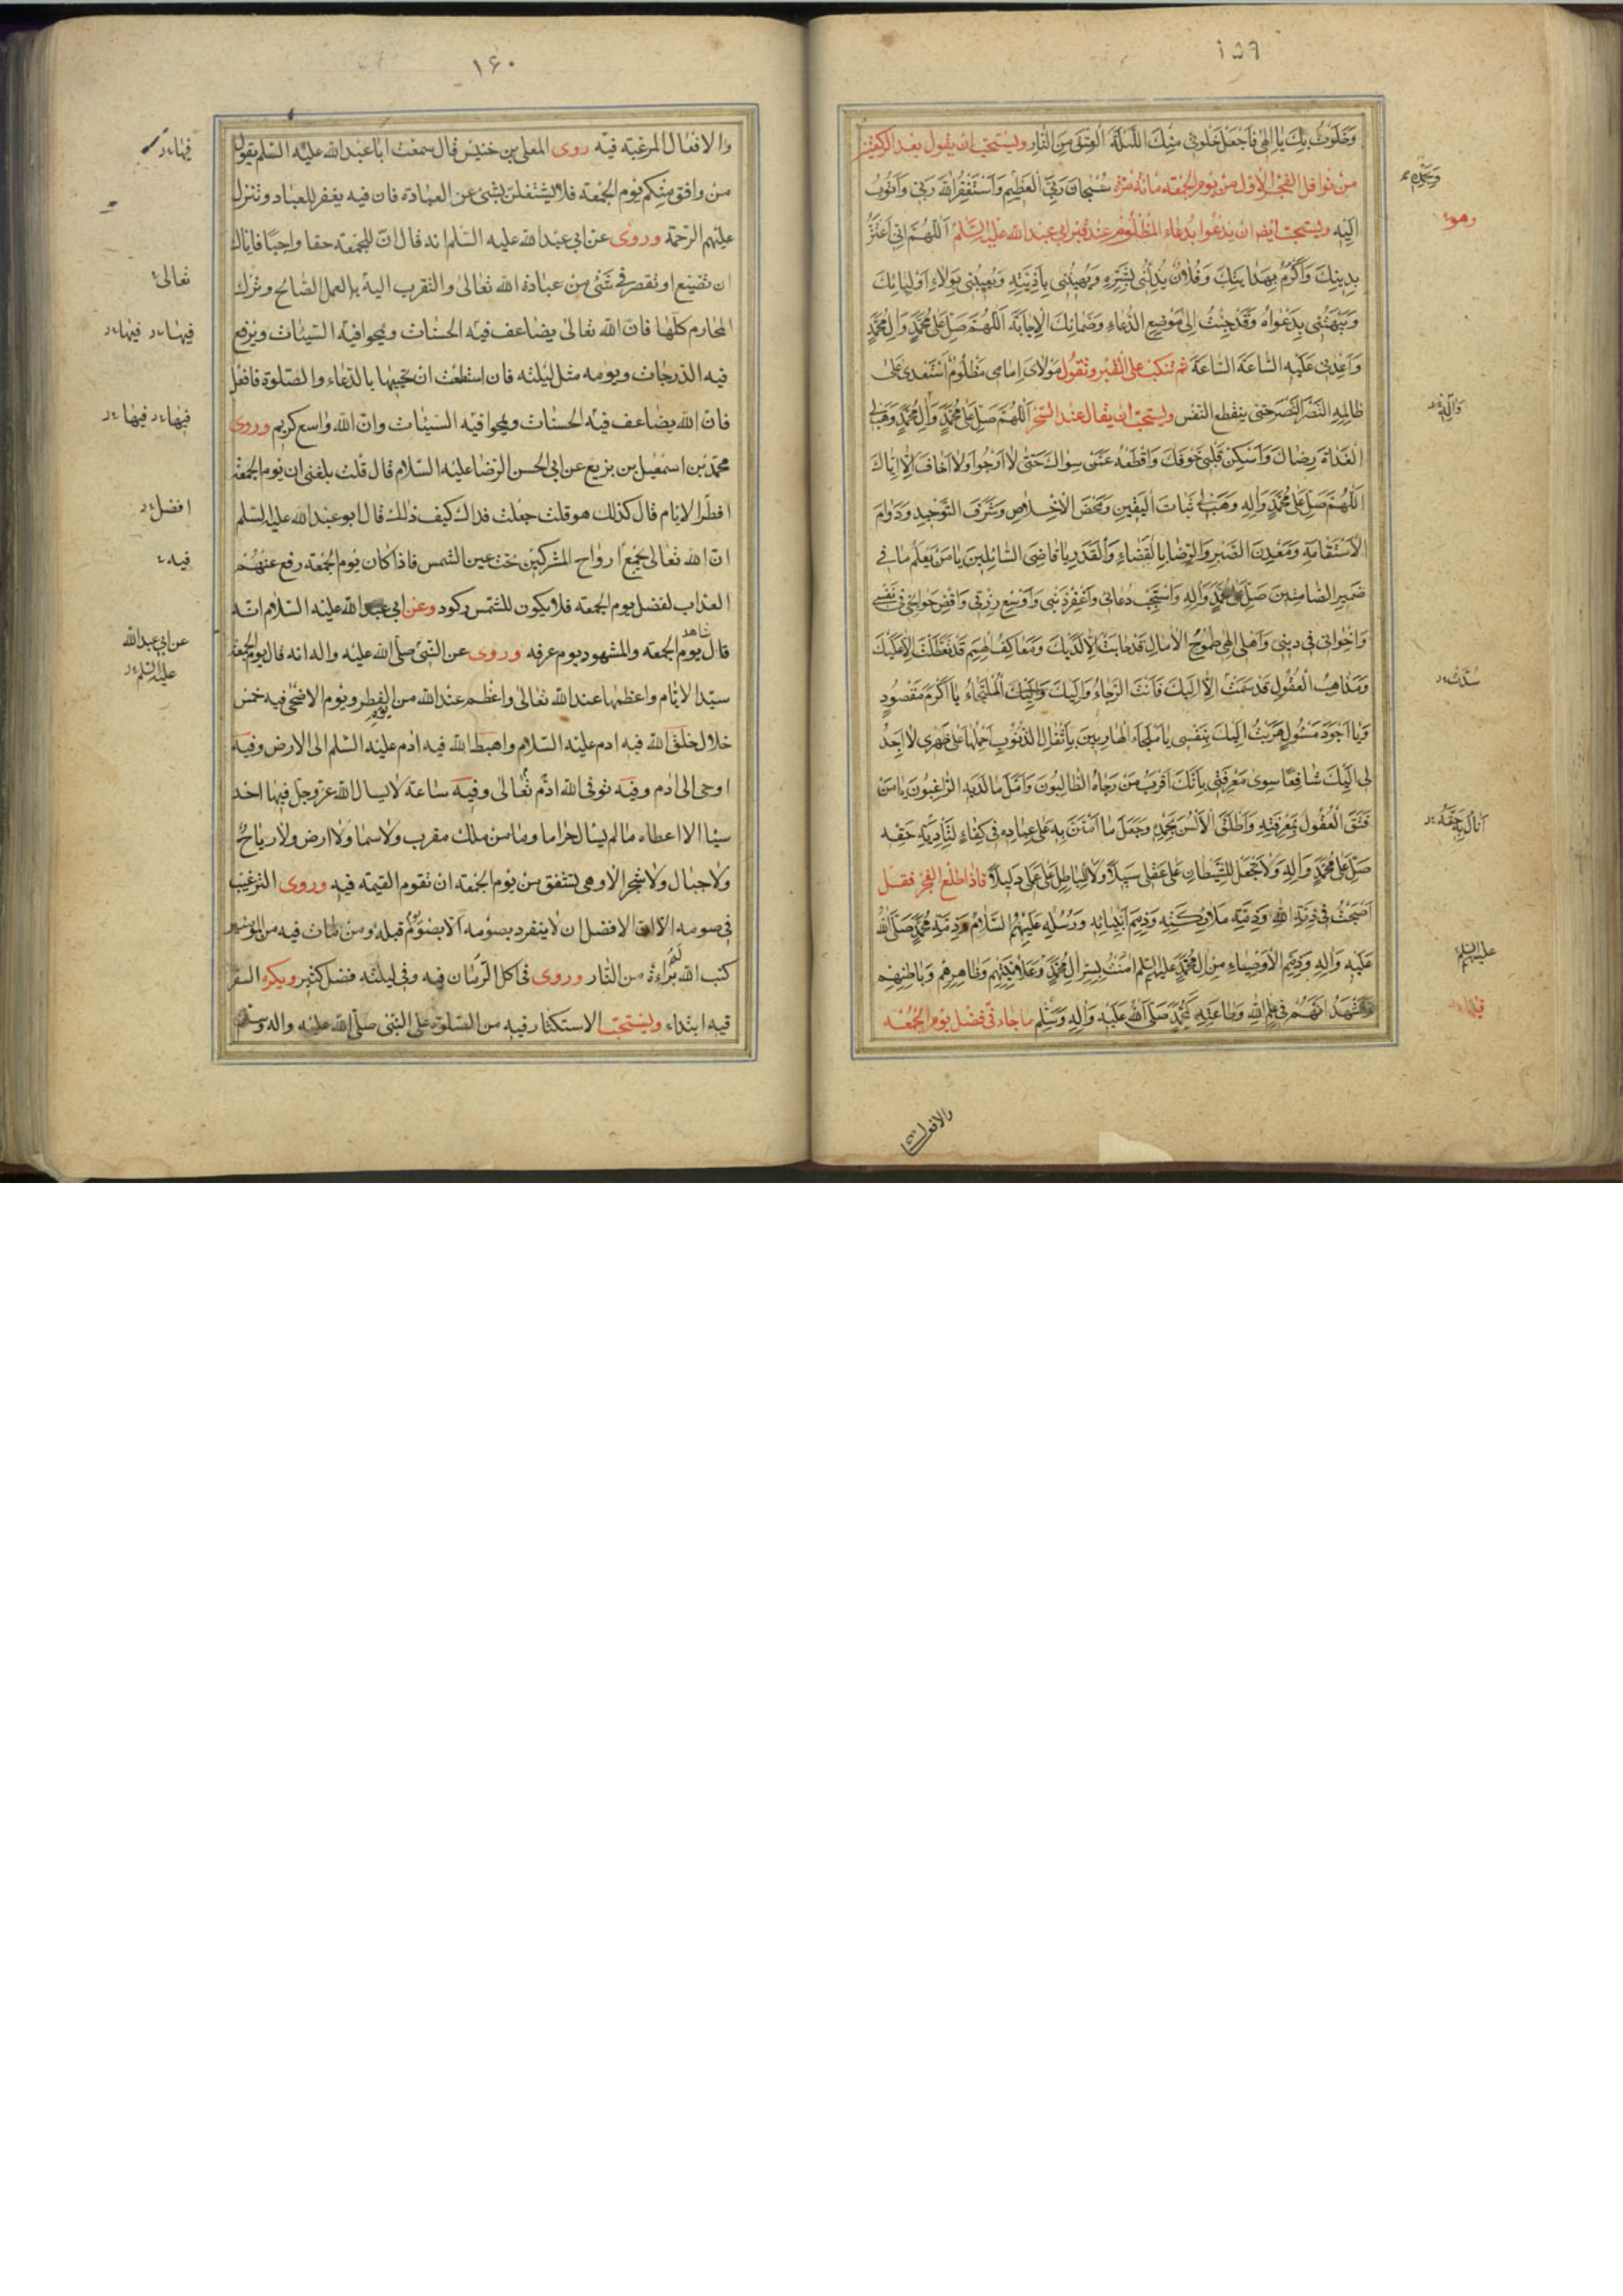 ١٥٩
وَخَلَوْتُ بِكَ يَا اِلٰهي فَاجْعَلْ خَلْوَتي مِنْكَ اللَّيْلَةَ الْعِتْقَ مِنَ النَّارِ ويستحبّ ان يقول بعد الركعتين
من نوافل الفجر الاول من يوم الجمعه مائة مرّة سُبْحَانَ رَبِّيَ الْعَظِيمِ وَاَسْتَغْفِرُ اللّٰهَ رَبّي وَاَتُوبُ
وهو
اِلَيْهِ ويستحبّ ايضا ان يدعوا بدعاء المظلوم عند قبر ابي عبد الله عليه السّلم اَللّٰهُمَّ اِنّي اَعْتَزُّ
بِدِينِكَ وَاَكْرُمُ بِهِدَايَتِكَ وَفُلَانٌ يُذِلُّني بِشَرِّهِ وَيُهِينُني بِاَذِيَّتِهِ وَيَعِيبُني بِوِلَاءِ اَوْلِيَائِكَ
وَيَبْهَتُني بِدَعْوَاهُ وَقَدْ جِئْتُ اِلٰى مَوْضِعِ الدُّعَاءِ وَضَمَانِكَ الْاِجَابَةَ اَللّٰهُمَّ صَلِّ عَلٰى مُحَمَّدٍ وَاٰلِ مُحَمَّدٍ
وَاَعْدِني عَلَيْهِ السَّاعَةَ السَّاعَةَ ثم تنكبّ على القبر وتقول مَوْلَايَ اِمَامي مَظْلُومٌ اسْتَعْدٰى عَلٰى
ظَالِمِهِ النَّصْرَ النَّصْرَ حتى ينقطع النفس ويستحبّ ان يقال عند السّحر اَللّٰهُمَّ صَلِّ عَلٰى مُحَمَّدٍ وَاٰلِ مُحَمَّدٍ وَهَبْ لي
وَاٰلِهِ
الْغَدَاةَ رِضَاكَ وَاَسْكِنْ قَلْبي خَوْفَكَ وَاقْطَعْهُ عَمَّنْ سِوَاكَ حَتّٰى لَا اَرْجُوا وَلَا اَخَافَ اِلَّا اِيَّاكَ
اَللّٰهُمَّ صَلِّ عَلٰى مُحَمَّدٍ وَاٰلِهِ وَهَبْ لي ثَبَاتَ الْيَقِينِ وَمَحْضَ الْاِخْلَاصِ وَشَرَفَ التَّوْحِيدِ وَدَوَامَ
الْاِسْتِقَامَةِ وَمَعْدِنَ الصَّبْرِ وَالرِّضَا بِالْقَضَاءِ وَالْقَدَرِ يَا قَاضِيَ السَّائِلِينَ يَا مَنْ يَعْلَمُ مَا في
ضَمِيرِ الصَّامِتِينَ صَلِّ عَلٰى مُحَمَّدٍ وَاٰلِهِ وَاسْتَجِبْ دُعَائي وَاغْفِرْ ذَنْبي وَاَوْسِعْ رِزْقي وَاقْضِ حَوَائِجي في نَفْسي
وَاِخْوَاني في دِيني وَاَهْلي اِلٰهي طُمُوحُ الْاٰمَالِ قَدْ خَابَتْ اِلَّا لَدَيْكَ وَمَعَاكِفُ الْهِمَمِ قَدْ تَعَطَّلَتْ اِلَّا عَلَيْكَ
وَمَذَاهِبُ الْعُقُولِ قَدْ سَمَتْ اِلَّا اِلَيْكَ فَاَنْتَ الرَّجَاءُ وَاِلَيْكَ وَاِلَيْكَ الْمُلْتَجَاءُ يَا اَكْرَمَ مَقْصُودٍ
وَيَا اَجْوَدَ مَسْئُولٍ هَرَبْتُ اِلَيْكَ بِنَفْسي يَا مَلْجَاَ الْهَارِبِينَ بِاَثْقَالِ الذُّنُوبِ اَحْمِلُهَا عَلٰى ظَهْري لَا اَجِدُ
لي اِلَيْكَ شَافِعًا سِوٰى مَعْرِفَتي بِاَنَّكَ اَقْرَبُ مَنْ رَجَاهُ الطَّالِبُونَ وَاَمَّلَ مَا لَدَيْهِ الرَّاغِبُونَ يَا مَنْ
فَتَقَ الْعُقُولَ بِمَعْرِفَتِهِ وَاَطْلَقَ الْاَلْسُنَ بِحَمْدِهِ وَجَعَلَ مَا امْتَنَّ بِهِ عَلٰى عِبَادِهِ في كِفَاءٍ لِتَاْدِيَةِ حَقِّهِ
صَلِّ عَلٰى مُحَمَّدٍ وَاٰلِهِ وَلَا تَجْعَلْ لِلشَّيْطَانِ عَلٰى عَقْلي سَبِيلًا وَلَا لِلْبَاطِلِ عَلٰى عَمَلي دَلِيلًا فاذا طلع الفجر فقل
اَصْبَحْتُ في ذِمَّةِ اللّٰهِ وَذِمَّةِ مَلَائِكَتِهِ وَذِمَمِ اَنْبِيَائِهِ وَرُسُلِهِ عَلَيْهِمُ السَّلَامُ وَذِمَّةِ مُحَمَّدٍ صَلَّى اللّٰهُ
عَلَيْهِ وَاٰلِهِ وَذِمَمِ الْاَوْصِيَاءِ مِنْ اٰلِ مُحَمَّدٍ عَلَيْهِمُ السَّلَم اٰمَنْتُ بِسِرِّ اٰلِ مُحَمَّدٍ وَعَلَانِيَتِهِمْ وَظَاهِرِهِمْ وَبَاطِنِهِمْ
وَاَشْهَدُ اَنَّهُمْ في عِلْمِ اللّٰهِ وَطَاعَتِهِ كَمُحَمَّدٍ صَلَّى اللّٰهُ عَلَيْهِ وَاٰلِهِ وَسَلَّم ما جاء في فضل يوم الجمعه
١۶٠
والافعال المرغبة فيه روى المعلى بن خنيس قال سمعت ابا عبد الله عليه السّلم يقول
فيها
من وافق منكم يوم الجمعة فلا يشتغلنّ بشئ عن العبادة فان فيه يغفر للعباد وتنزل
عليهم الرّحمة وروى عن ابي عبد الله عليه السّلم انه قال انّ للجمعة حقا واجبًا فاياك
ان تضيع او تقصر في شئ من عبادة الله تعالى والتقرب اليه بالعمل الصّالح وترك
تعالى
المحارم كلّها فانّ الله تعالى يضاعف فيه الحسنات ويمحوا فيه السّيئات ويرفع
فيها فيها
فيه الدّرجات ويومه مثل ليلته فان استطعت ان تحييها بالدّعاء والصّلوة فافعل
فانّ الله يضاعف فيه الحسنات ويمحوا فيه السّيئات وانّ الله واسع كريم وروى
فيها فيها
محمّد بن اسمعيل بن بزيع عن ابي الحسن الرّضا عليه السّلام قال قلت بلغني ان يوم الجمعة
اقصر الايّام قال كذلك هو قلت جعلت فداك كيف ذلك قال ابو عبد الله عليه السّلم
افضل
انّ الله تعالى يجمع ارواح المشركين تحت عين الشّمس فاذا كان يوم الجمعة رفع عنهم
فيه
العذاب لفضل يوم الجمعة فلا يكون للشّمس ركود وعن ابي عبد الله عليه السّلام انّه
قال شاهد يوم الجمعة والمشهود يوم عرفه وروى عن النّبيّ صلّى الله عليه واله انه قال يوم الجمعة
عن ابي عبد الله
عليه السّلم
سيّد الايّام واعظمها عند الله تعالى واعظم عند الله من يوم الفطر ويوم الاضحى فيه خمس
خلال خلق الله فيه ادم عليه السّلام واهبط الله فيه ادم عليه السّلم الى الارض وفيه
اوحى الى ادم وفيه توفى الله ادم تعالى وفيه ساعة لا يسال الله عزوجل فيها احد
شيئا الا اعطاه ما لم يسال حراما وما من ملك مقرب ولا سما ولا ارض ولا رياح
ولا جبال ولا شجر الا وهى تشفق من يوم الجمعة ان تقوم القيمة فيه وروى الترغيب
في صومه الا انّ الافضل ان لا ينفرد بصومه الا بصوم يوم قبله ومن مات فيه من المؤمنين
كتب الله له براءة من النّار وروى في اكل الرّمّان فيه وفي ليلته فضل كثير ويكره السفر
فيه ابتداء ويستحبّ الاستكثار فيه من الصّلوة على النّبيّ صلّى الله عليه واله وسلّم
والافعال